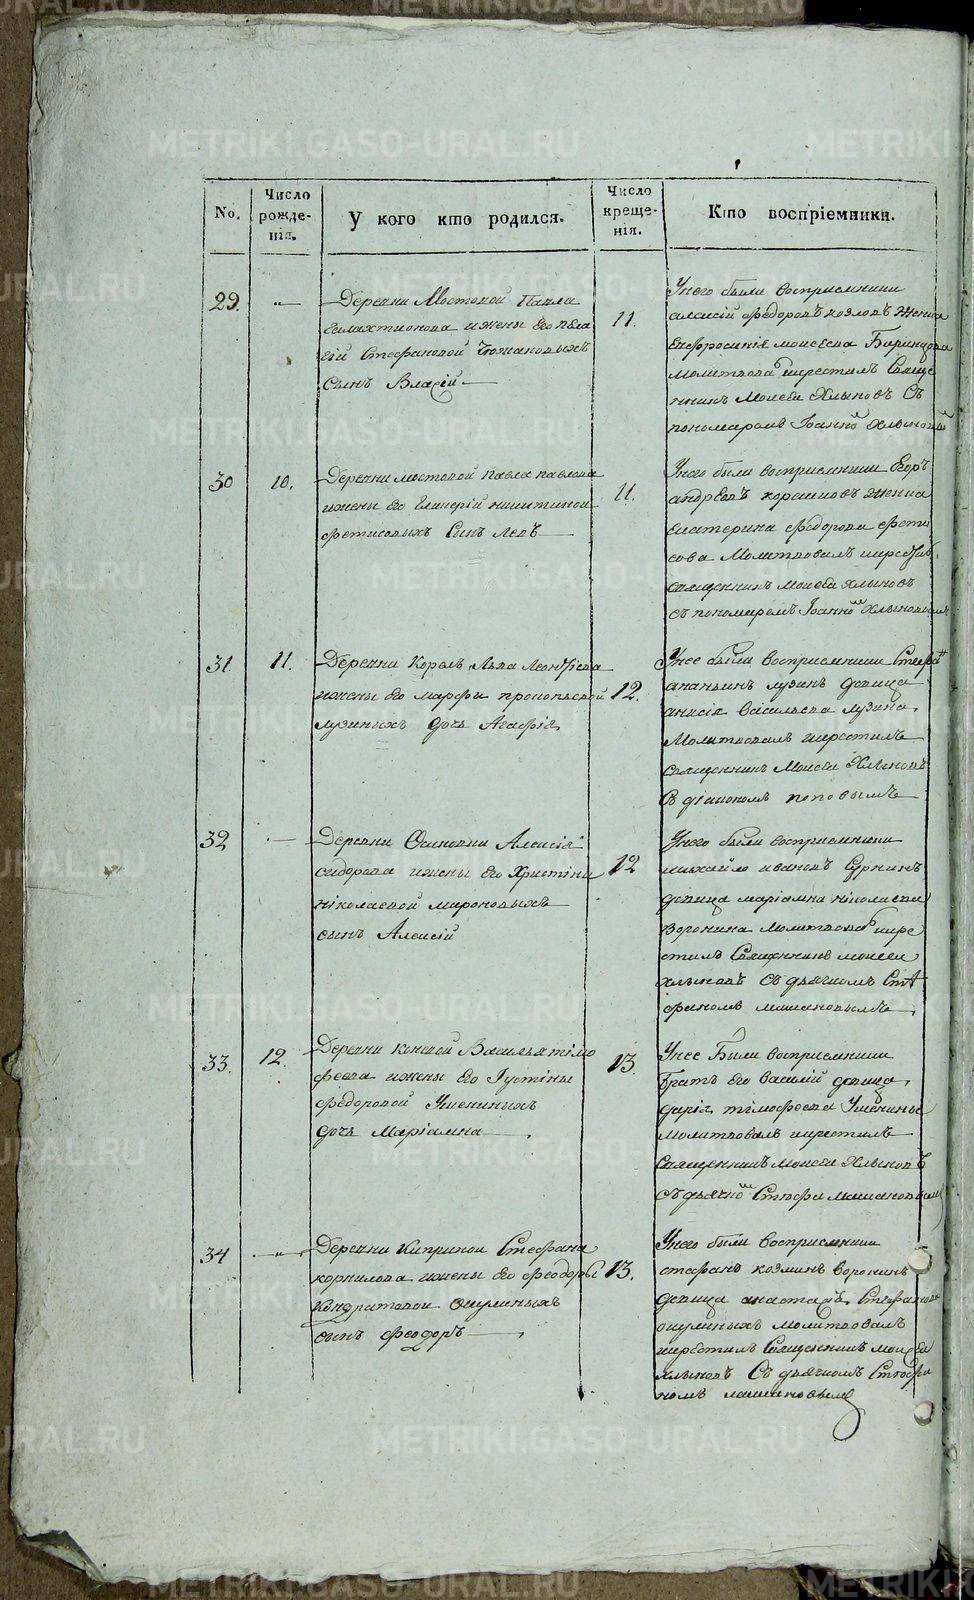 No.
Число рожде-
нія.
У кого кто родился.
Число креще-
нія.
Кто воспріемники.
29.
Деревни Мостовой Павла
Галахтионова и жены его Пела
гій Стефановой
сынъ Власій
11.
У него были восприемники
алексій федоровъ козловъ жена
Ефросинія моисеева
молитвова и крестилъ Свяще
нникъ Моисей Хлыновъ Съ
пономаромъ Іоанно Хлыновы
30
10.
Деревни мостовой Павла павлова
и жены его Гликерій никитиной
фетисовыхъ Сынъ Левъ
11.
У него были восприемники Егоръ
андреевъ жена
Екатерина федорова фети
сова Молитвовалъ и крестилъ
священникъ моисей хлыновъ
съ пономаремъ Іоанно Хлыновымъ
31.
11.
Деревни Король Льва Леонтіева
и жены его марфы прокопьевой
лузиныхъ дочь Агафія
12.
У нее были восприемники Стефа
ананьинъ лузинъ девица
анисія васильева лузина
Молитвовалъ и крестилъ
священникъ Моисей Хлыновъ
Съ діакономъ поповымъ
32
Деревни Алексія
сидорова и жены его Христины
ніколаевой мироновыхъ
сынъ Алексій
12
У него были восприемники
михайло ивановъ
девица маріамна николаева
Воронина молитвова и кре
стилъ Священникъ моисей
хлыновъ съ дьячкомъ Сте
фаномъ
33.
12.
Деревни коневой Васильа тімо
феева и жены его Густіны
федоровой
дочь Маріамна
13.
У нее Были восприемники
братъ его василій девица
дарія тімофеева
молитвовалъ и крестилъ
священникъ моисей хлыновъ
съ дьячко Стефа
34
Деревни Киприной Стефана
корнилова и жены его феодоры
Кондратовой
сынъ феодоръ
13.
У него были восприемники
стефанъ козминъ воронинъ
девица анастасія Стефанова
молитвовалъ
и крестилъ Священникъ моисей
хлыновъ Съ дьячкомъ Стефа
номъ
METRIKI.GASO-URAL.RU